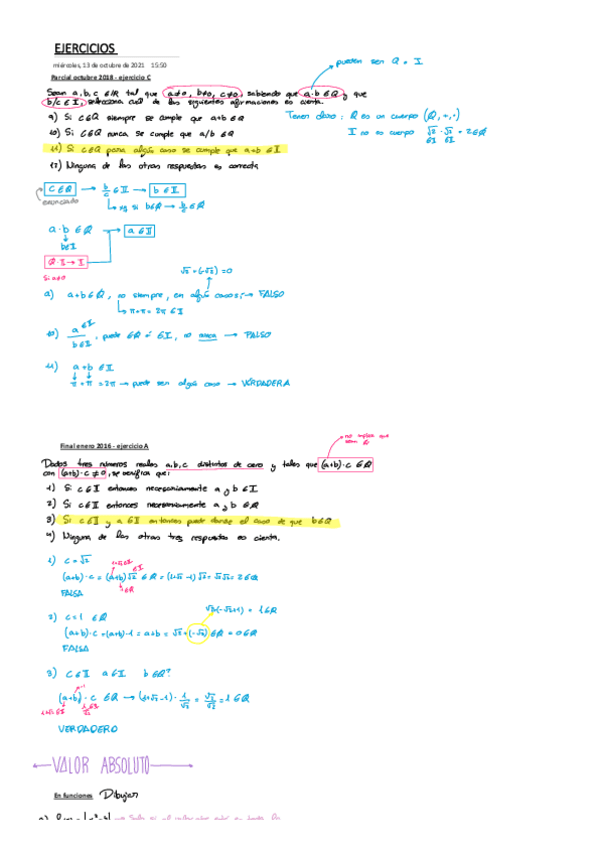 EJERCICIOS
miércoles, 13 de octubre de 2021 15:50
pueden ser Q o I
Parcial octubre 2018 - ejercicio C
Sean a, b, c ∈ ℝ tal que a≠0, b≠0, c≠0, sabiendo que a·b ∈ Q y que
b/c ∈ I, selecciona cuál de las siguientes afirmaciones es cierta.
9) Si c∈Q siempre se cumple que a+b ∈ Q
10) Si c∈Q nunca, se cumple que a/b ∈ Q
11) Si c∈Q para algún caso se cumple que a+b ∈ I
12) Ninguna de las otras respuestas es correcta
Tener claro: Q es un cuerpo (Q, +, ·)
I no es cuerpo √2 · √2 = 2 ∈ Q
∈I ∈I
c∈Q → b/c ∈ I → b ∈ I
enunciado
xq si b∈Q → b/c ∈ Q
a·b ∈ Q → a ∈ I
b∈I
Q·I → I
Si a≠0
√2 + (-√2) = 0
9) a+b ∈ Q, no siempre, en algún caso sí → FALSO
π+π = 2π ∈ I
10) a∈I / b∈I, puede ∈Q ó ∈I, no nunca → FALSO
11) a+b ∈ I
π + π = 2π → puede ser algún caso → VERDADERA
Final enero 2016 - ejercicio A
no implica que
Dados tres números reales a, b, c distintos de cero y tales que (a+b)·c ∈ Q
con (a+b)·c ≠ 0, se verifica que:
1) Si c∈I entonces necesariamente a y b ∈ I
2) Si c∈I entonces necesariamente a y b ∈ Q
3) Si c∈I y a∈I entonces puede darse el caso de que b∈Q
4) Ninguna de las otras tres respuestas es cierta.
1) c = √2
(a+b)·c = (a+b)√2 ∈ Q = (1+√2-1)√2 = √2·√2 = 2 ∈ Q
FALSA
√2+(-√2+1) = 1 ∈ Q
2) c=1 ∈ Q
(a+b)·c = (a+b)·1 = a+b = √2 + (-√2) ∈ Q = 0 ∈ Q
FALSA
3) c∈I a∈I b∈Q?
(a+b)·c ∈ Q → (1+√2-1)·1/√2 = √2/√2 = 1 ∈ Q
VERDADERO
VALOR ABSOLUTO
En funciones Dibujar